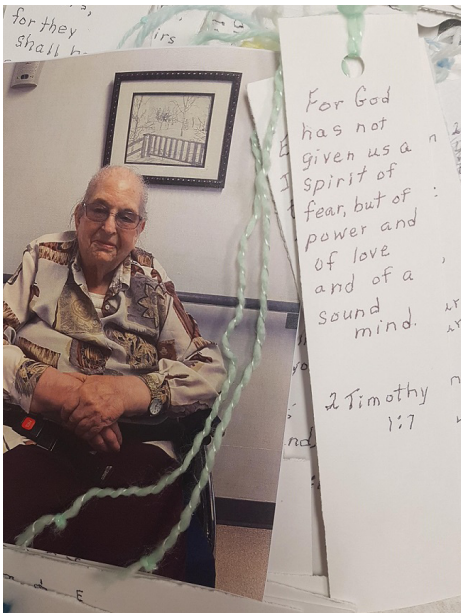 for they
shall h
irs
For God
has not
given us a
spirit of
fear, but of
power and
of love
and of a
sound
mind.
2 Timothy
1:7
nd